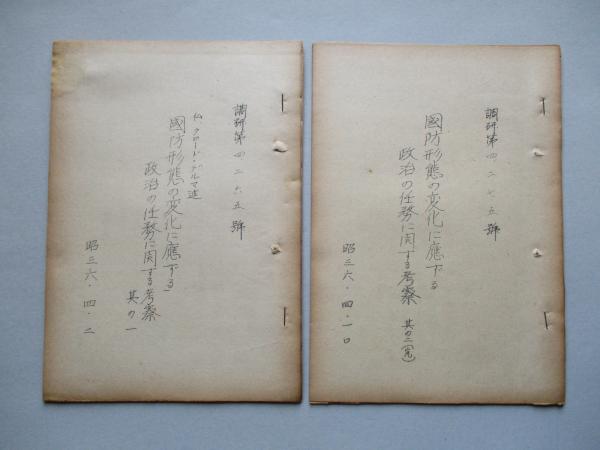 調研第四二六五號
仏・クロード・デルマ述
國防形態の変化に應ずる
政治の任務に関する考察
其の一
昭三六・四・二
調研第四二七五號
國防形態の変化に應ずる
政治の任務に関する考察 其の二(完)
昭三六・四・一〇